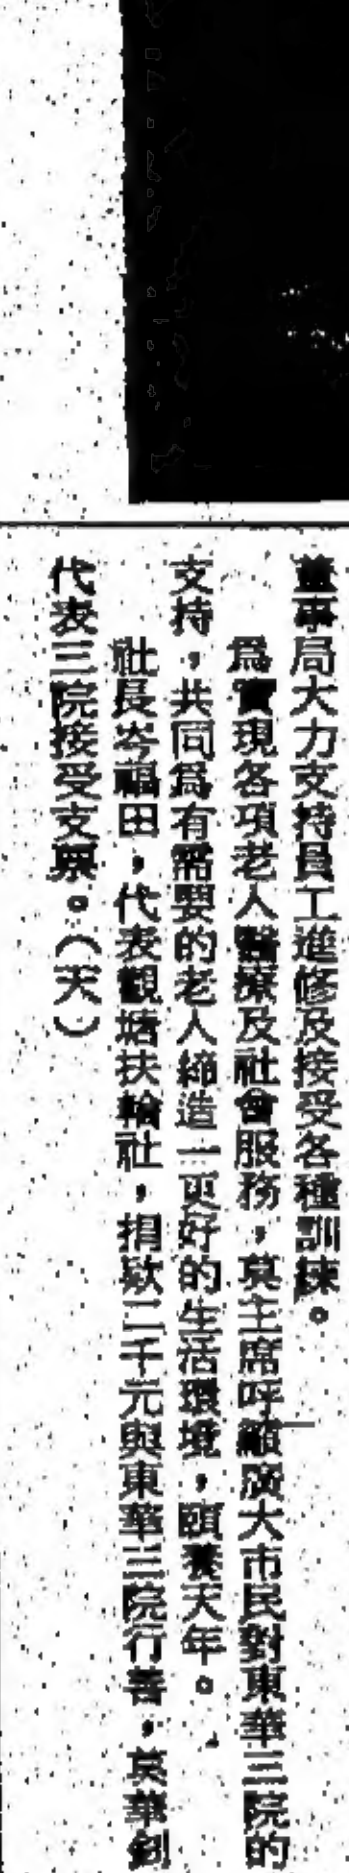 董事局大力支持員工進修及接受各種訓練。
為實現各項老人醫療及社會服務，莫主席呼籲廣大市民對東華三院的
支持，共同為有需要的老人締造一更好的生活環境，頤養天年。
社長岑福田，代表觀塘扶輪社，捐欵二千元與東華三院行善，莫華釗
代表三院接受支票。（天）